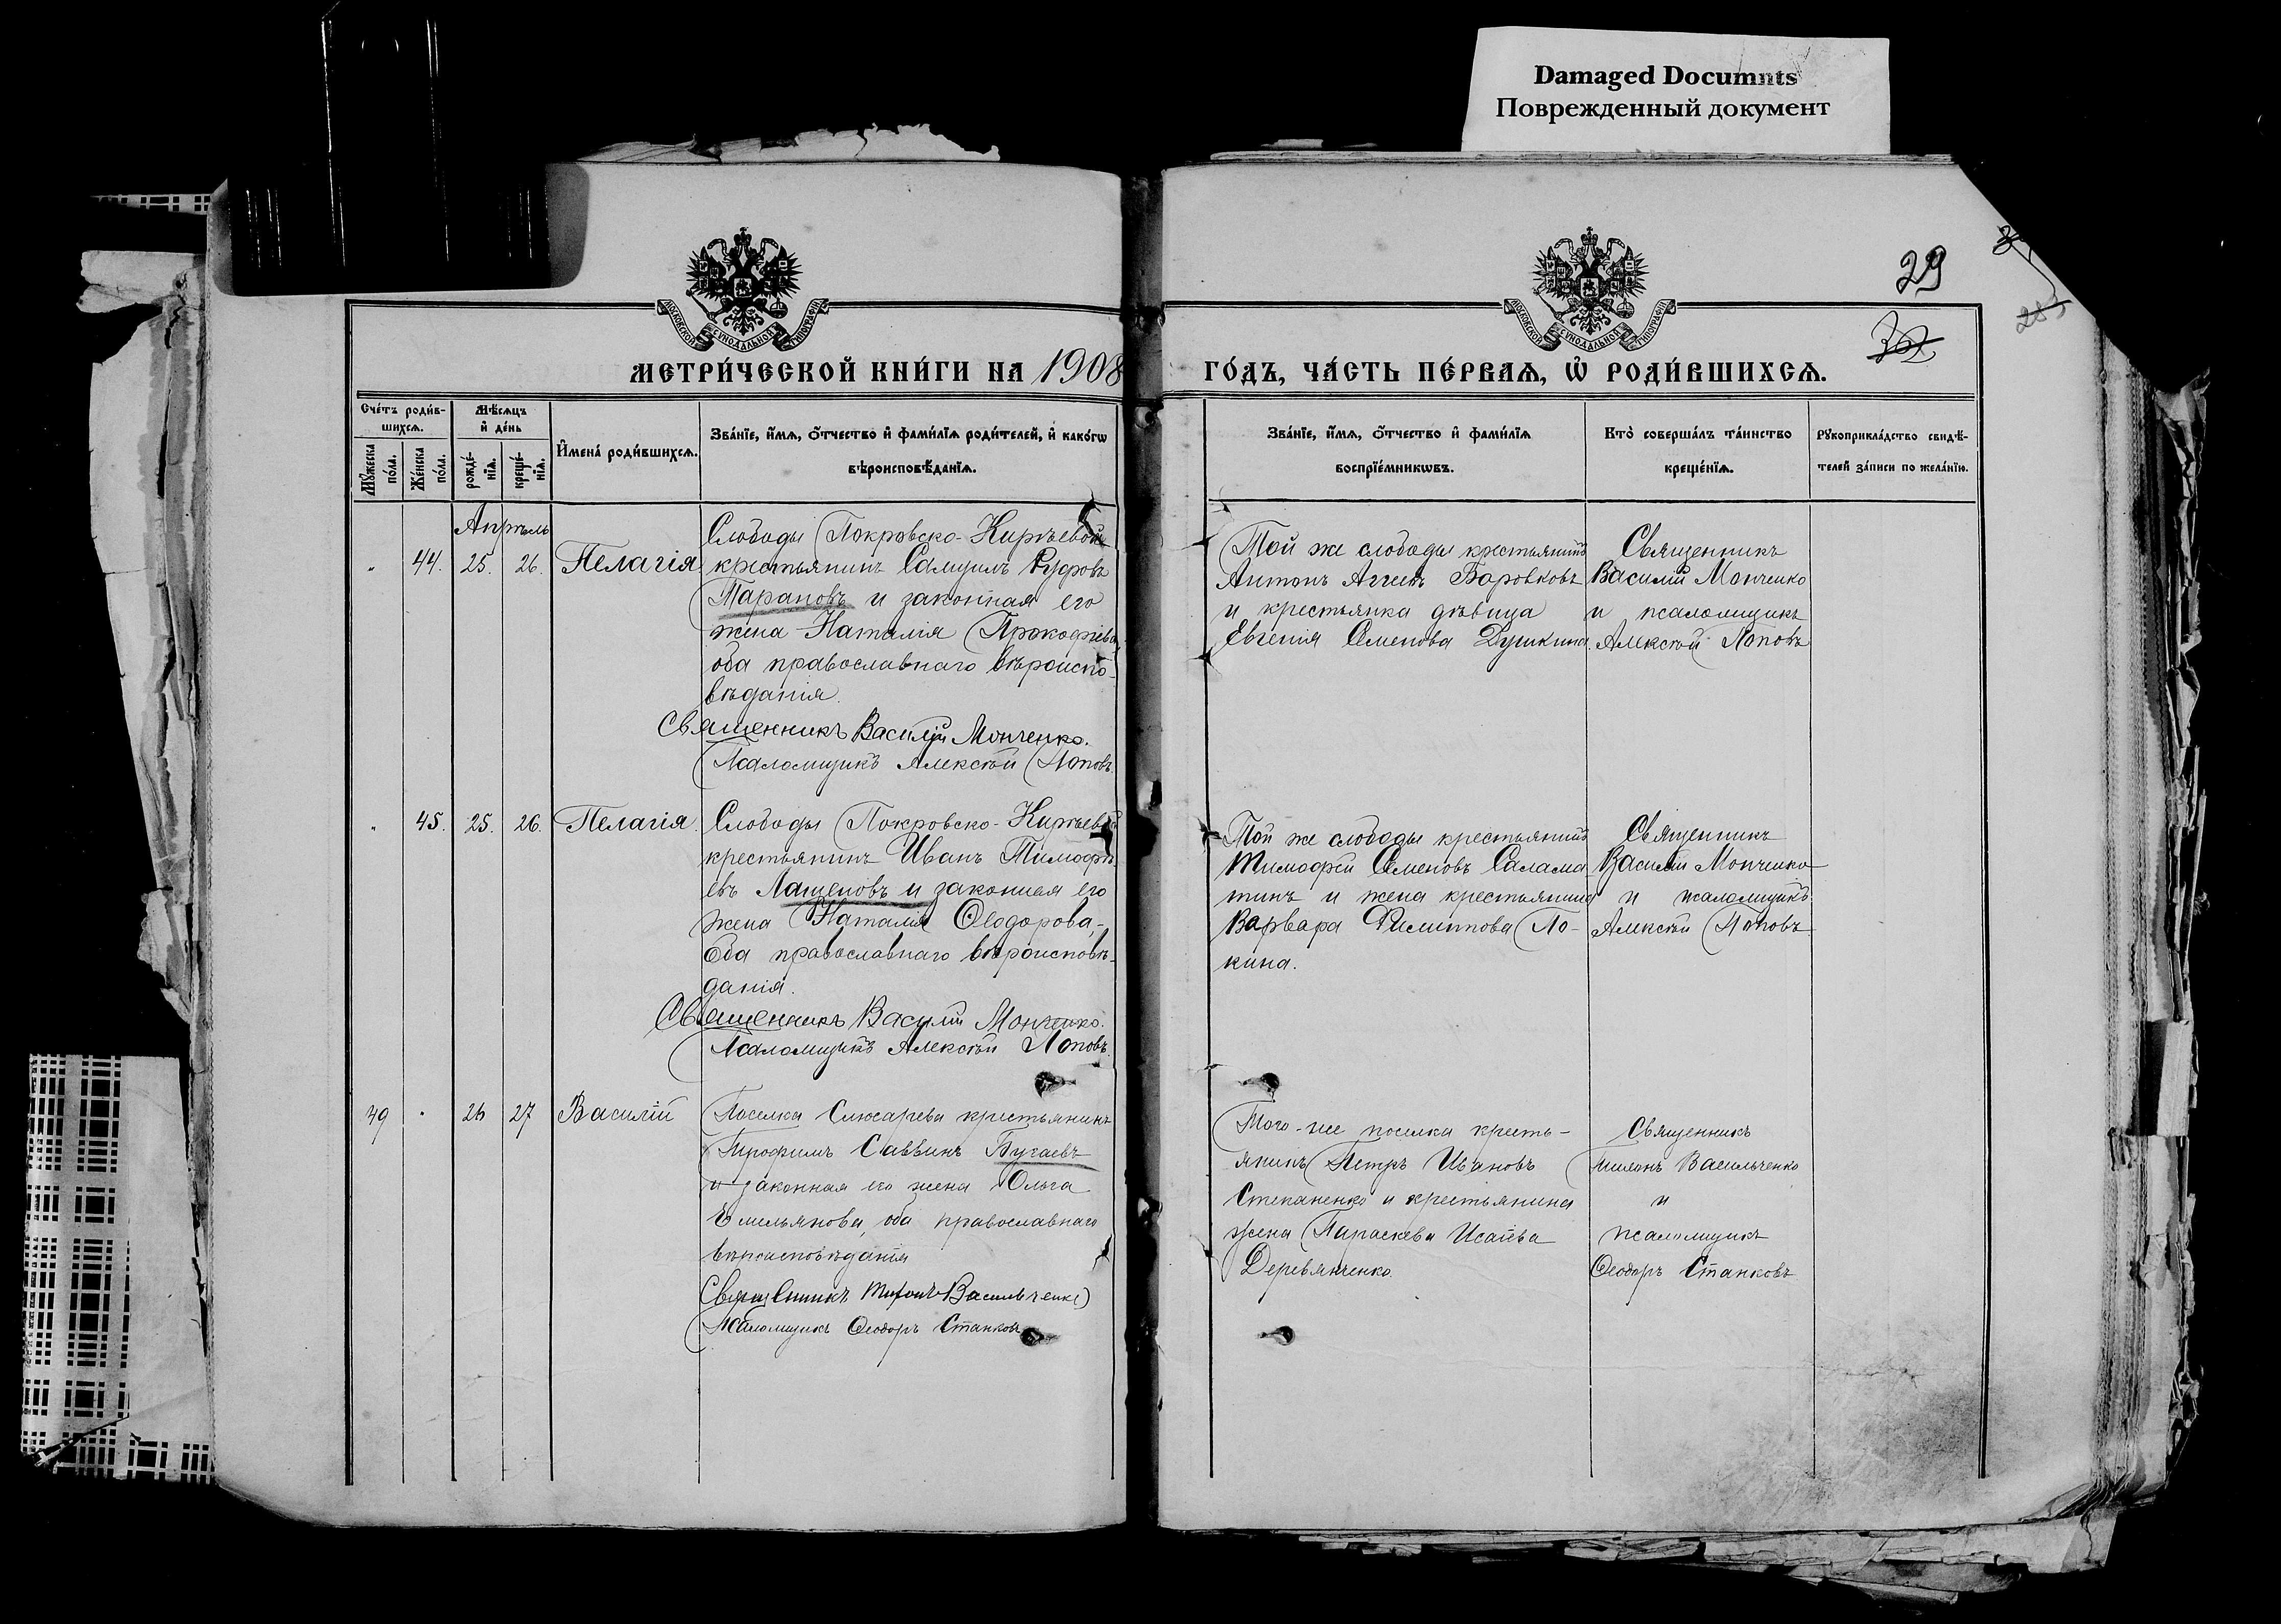 Damaged Documnts
Поврежденный документ
29
МОСКОВСКОЙ СУНОДАЛЬНОЙ ТИПОГРАФІИ
МОСКОВСКОЙ СУНОДАЛЬНОЙ ТИПОГРАФІИ
МЕТРИ́ЧЕСКОЙ КНИ́ГИ НА 1908
ГО́ДЪ, ЧА́СТЬ ПЕ́РВАѦ, Ѡ҆ РОДИ́ВШИХСѦ.
Сче́тъ роди́в-
шихсѧ.
Мѣ́сѧцъ
и҆ де́нь
Мꙋ́жеска
по́ла.
Же́нска
по́ла.
рожде́-
нїѧ.
креще́-
нїѧ.
И҆мена̀ роди́вшихсѧ.
Зва́нїе, и҆́мѧ, ѻ҆́тчество и҆ фами́лїѧ роди́телей, и҆ како́гѡ
вѣроисповѣ́данїѧ.
Зва́нїе, и҆́мѧ, ѻ҆́тчество и҆ фами́лїѧ
воспрїе́мникѡвъ.
Кто̀ соверша́лъ та́инство
креще́нїѧ.
Рꙋкоприкла́дство свидѣ́-
телей за́писи по жела́нїю.
Апрѣль
" 44. 25. 26. Пелагія
Слободы Покровско-Кирѣевой
крестьянинъ Самуилъ Руфовъ
Тарановъ и законная его
жена Наталія Прокофіева,
оба православнаго вѣроиспо-
вѣданія.
Священникъ Василій Монченко.
Псаломщикъ Алексѣй Поповъ.
Той же слободы крестьянинъ
Антонъ Аггеевъ Боровковъ
и крестьянка дѣвица
Евгенія Семенова Душкина.
Священникъ
Василій Монченко
и псаломщикъ
Алексѣй Поповъ
" 45. 25. 26. Пелагія.
Слободы Покровско-Кирѣевой
крестьянинъ Иванъ Тимофѣ-
евъ Лашеновъ и законная его
жена Наталія Ѳеодорова,-
Оба православнаго вѣроисповѣ-
данія.
Священникъ Василій Монченко.
Псаломщикъ Алексѣй Поповъ.
Той же слободы крестьянинъ
Тимофей Семеновъ Салама-
тинъ и жена крестьянина
Варвара Филиппова По-
кина.
Священникъ
Василій Монченко
и псаломщикъ
Алексѣй Поповъ
49 " 26 27 Василій
Поселка Слюсарева крестьянинъ
Трофимъ Саввинъ Бугаевъ
и законная его жена Ольга
Емельянова, оба православнаго
вѣроисповѣданія
Священникъ Миронъ Васильченко
Псаломщикъ Ѳеодоръ Станковъ
Того-же поселка кресть-
янинъ Петръ Ивановъ
Степаненко и крестьянина
жена Параскева Исаіева
Деревянченко.
Священникъ
Миронъ Васильченко
и
псаломщикъ
Ѳеодоръ Станковъ